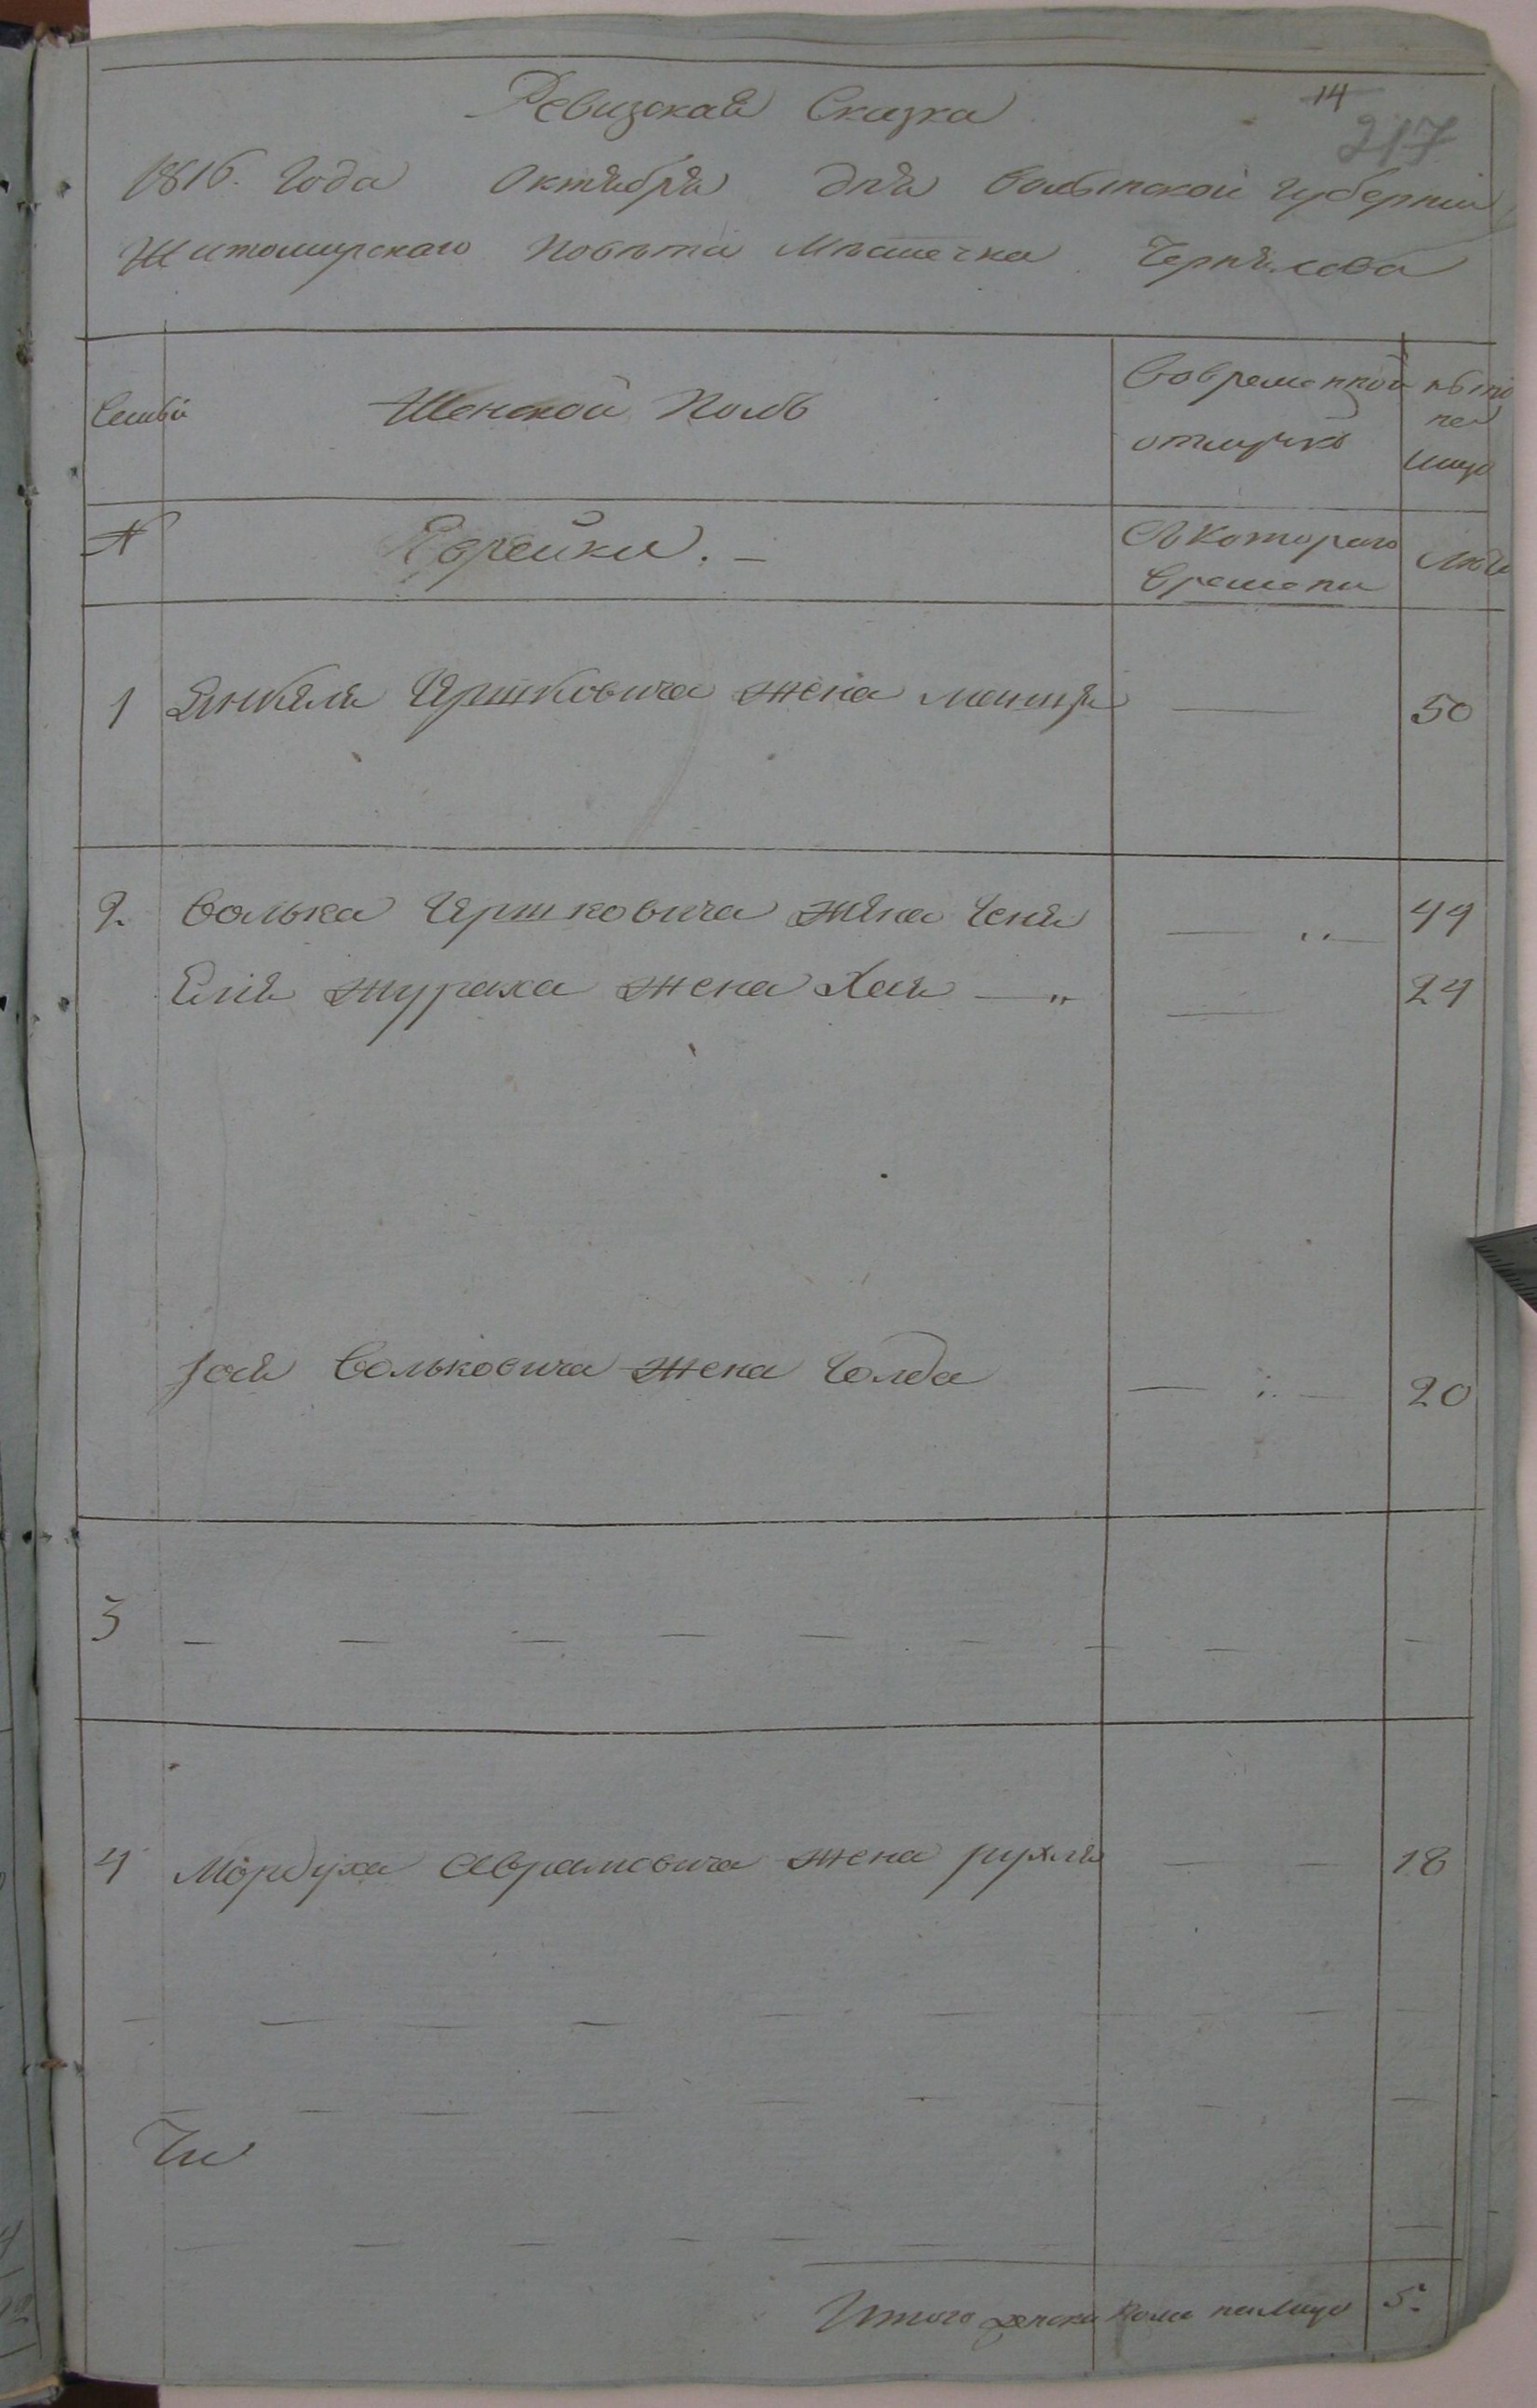 14
217
Ревизская Сказка
1816. Года Октября дня Волынской Губернии
Житомирскаго Повѣта Мѣстечка Чернялова
Семьи
Женской Полъ
Во временной отлучкѣ
ныне на лицо
№
Еврейки. —
Съ котораго времени
Лѣты
1 Янкеля Иршковича жена — 50
2. Волька Иршковича жена Сеня — „ — 44
Еля жена Хая — „ — 24
Вольковича жена Голда — „ — 20
3 — — — — — — — — —
4 Мордуха Аврамовича жена рухля — — 18
Чи
Итого женска пола на лицо 5.